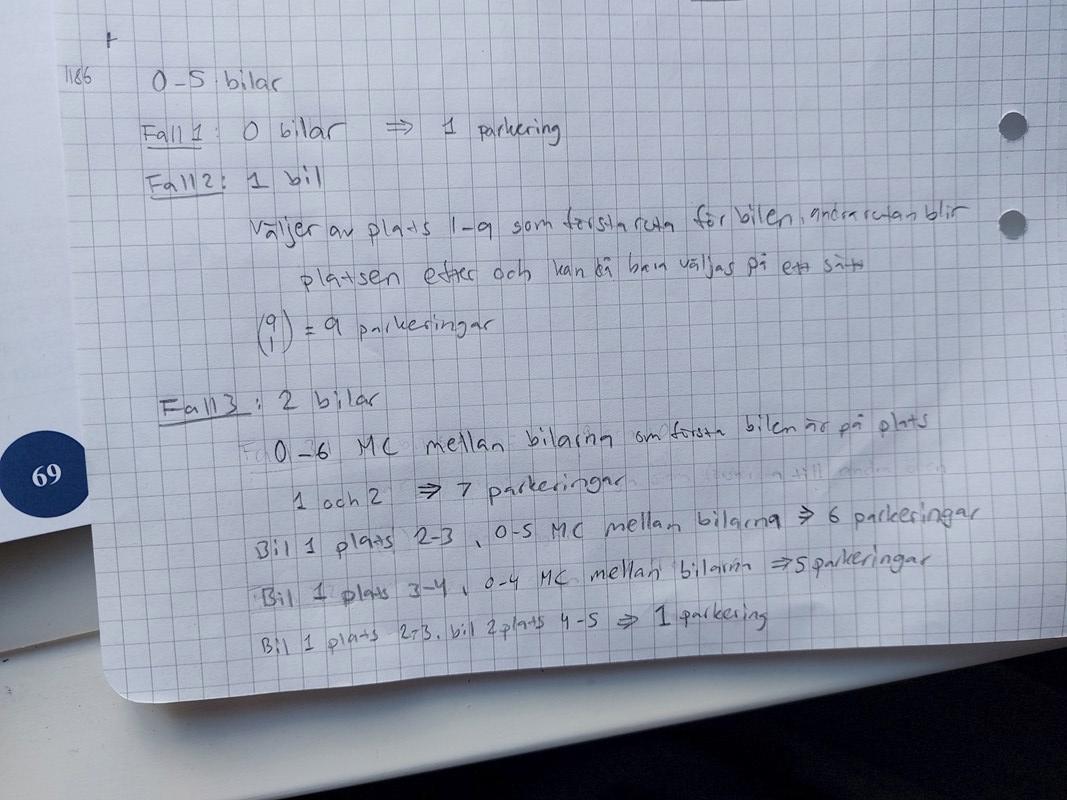 1186
0-5 bilar
Fall 1: 0 bilar ⇒ 1 parkering
Fall 2: 1 bil
väljer av plats 1-9 som första ruta för bilen, andra rutan blir
platsen efter och kan då bara väljas på ett sätt
(9 1) = 9 parkeringar
Fall 3: 2 bilar
0-6 MC mellan bilarna om första bilen är på plats
1 och 2 ⇒ 7 parkeringar
Bil 1 plats 2-3, 0-5 MC mellan bilarna ⇒ 6 parkeringar
Bil 1 plats 3-4, 0-4 MC mellan bilarna ⇒ 5 parkeringar
Bil 1 plats 2-3, bil 2 plats 4-5 ⇒ 1 parkering
69